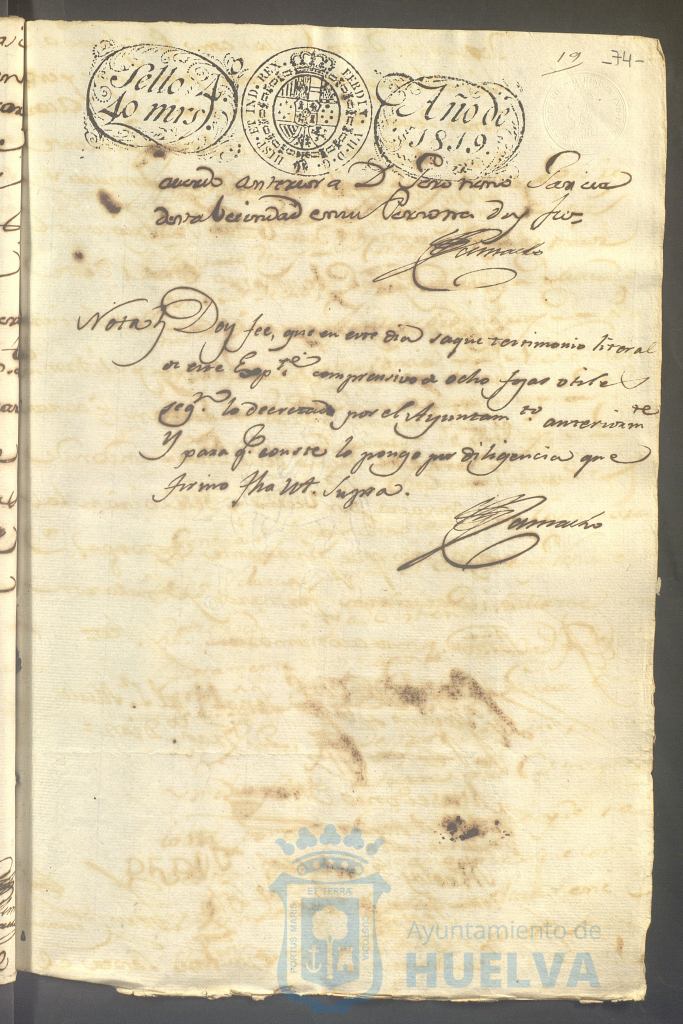 19 -74-
Sello 4.º
40 mrs.
HISP. ET IND. REX. FERDIN. VII. D. G.
Año de
1819.
acuerdo anterior a Dn Geronimo Garcia
de esta Vecindad en su Persona doy fee=
Camacho
Nota Doy fee, que en este dia saque testimonio literal
de este Expte. comprensivo de ocho fojas utiles
segn. lo decretado por el Ayuntamto. anteriormte
y para qe. conste lo pongo por diligencia que
firmo fha ut. supra.
Camacho
PORTUS MARIS ET TERRÆ CUSTODIA
Ayuntamiento de
HUELVA